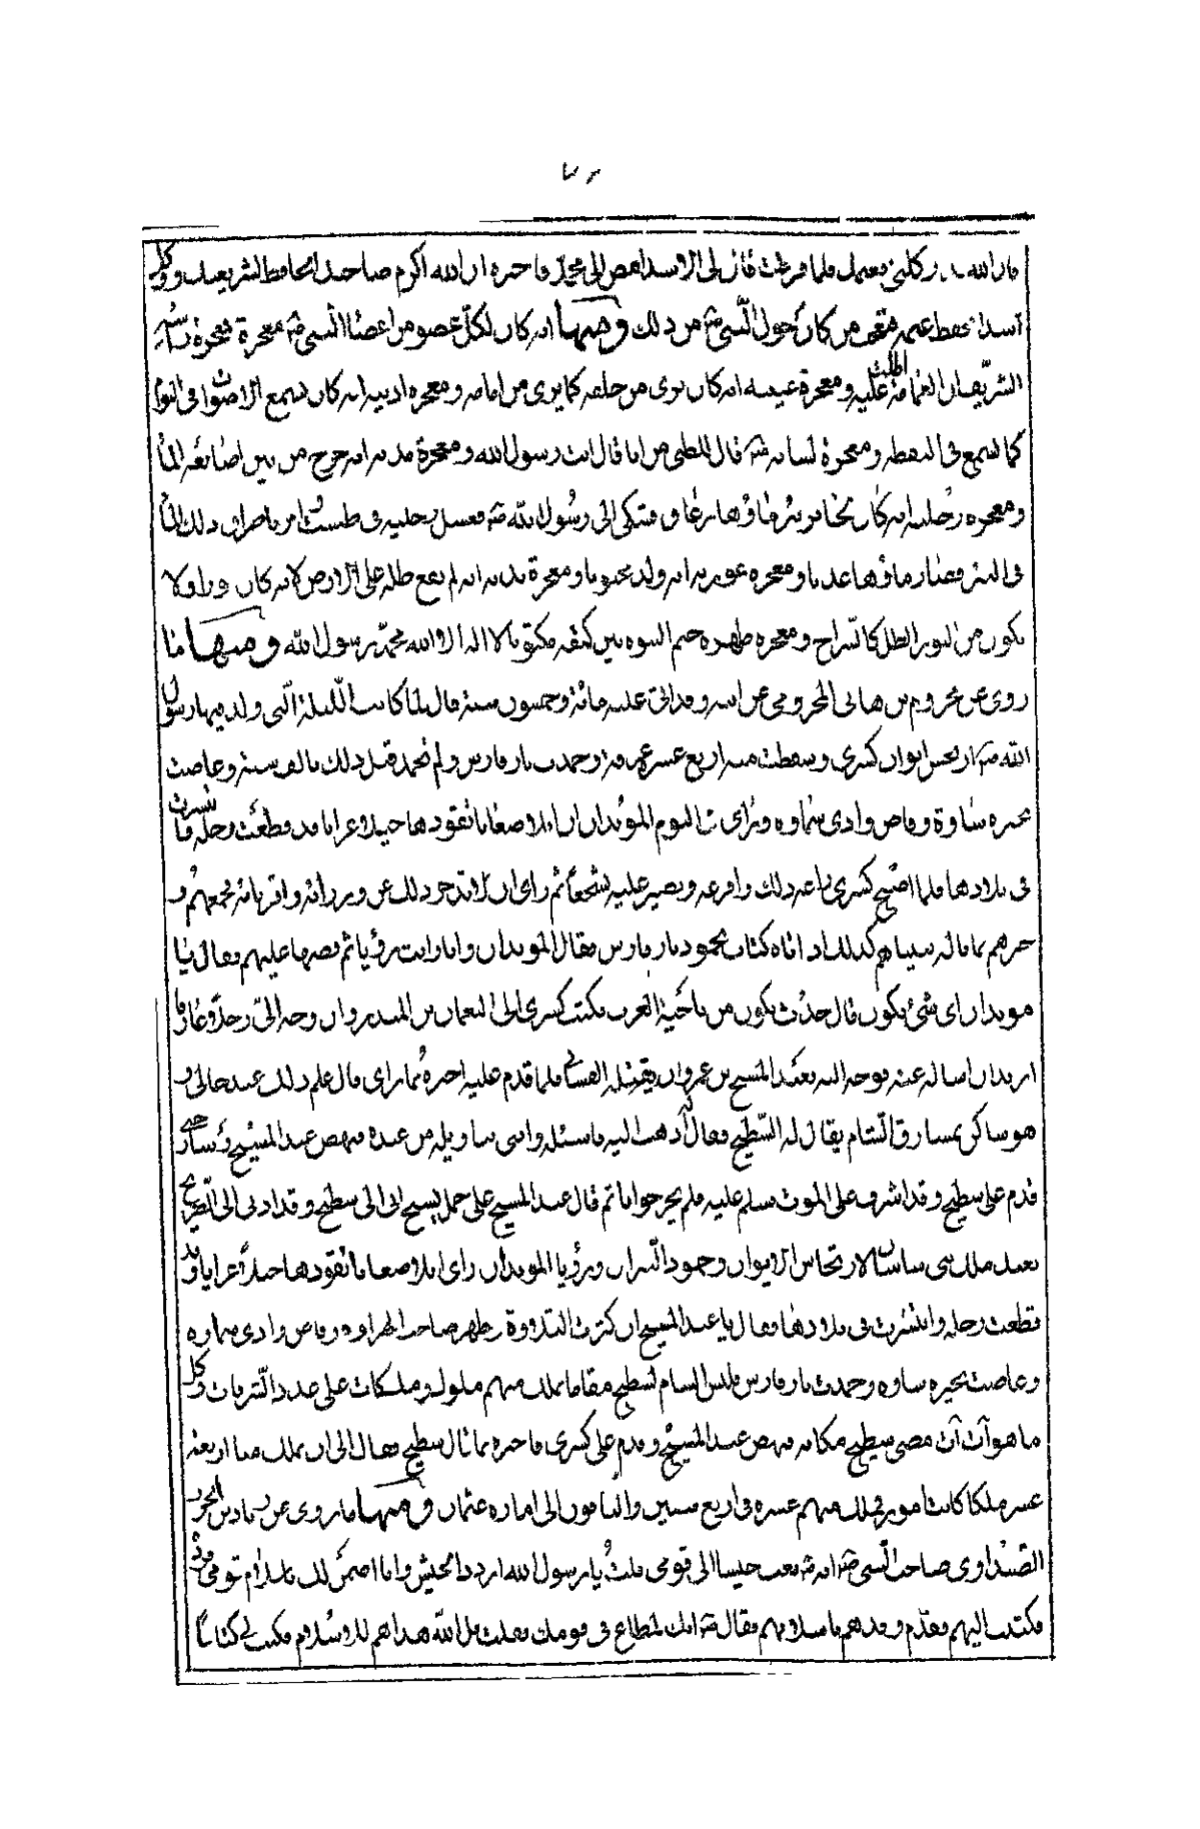 فان الله قد وكلني بغنمك فلما فرغت قال لي الاسد امض الى محمد فاخبره ان الله اكرم صاحبك الحافظ لشريعتك ووكل
اسدا يحفظ غنمه فتعجب من كان حول النبي ص من ذلك ومنها انه كان لكل عضو من اعضا النبي ص معجزة فمعجزة راسه
الشريف ان الغمامة اظلت عليه ومعجزة عينيه انه كان يرى من خلفه كما يرى من امامه ومعجزه اذنيه انه كان يسمع الاصوات في النوم
كما يسمع في اليقظه ومعجزة لسانه ص قال للظبي من انا قال انت رسول الله ومعجزة يديه انه خرج من بين اصابعه الماء
ومعجزه رجليه انه كان لجابر بئر ماؤها زعاق فشكى الى رسول الله ص فغسل رجليه في طست وامر باهراق ذلك الماء
في البئر فصار ماؤها عذبا ومعجزه عورته انه ولد مختونا ومعجزة بدنه انه لم يقع ظله على الارض لانه كان نورا ولا
يكون من النور الظل كالسراج ومعجزه ظهره ختم النبوه بين كتفيه مكتوبا لا اله الا الله محمد رسول الله ومنها ما
روى عن مخزوم بن هاني المخزومي عن ابيه وقد اتى عليه مائة وخمسون سنة قال لما كانت الليلة التي ولد فيها رسول
الله ص ارتجس ايوان كسرى وسقطت منه اربع عشره شرفة وخمدت نار فارس ولم تخمد قبل ذلك بالف سنة وغاضت
بحيره ساوة وفاض وادي سماوه وراى في النوم الموبذان ان ابلا صعابا تقود ها خيلا عرابا قد قطعت دجله فانتشرت
في بلادها فلما اصبح كسرى راعه ذلك وافزعه وتصبر عليه تشجعا ثم راى ان لا يدخر ذلك عن وزرائه واقربائه فجمعهم و
خبرهم بما هاله فبينا هم كذلك اذ اتاه كتاب بخمود نار فارس فقال الموبذان وانا رايت رؤيا ثم قصها عليهم فقال يا
موبذان اى شئ يكون قال حدث يكون من ناحية العرب فكتب كسرى الى النعمان بن المنذر وان وجه الي رجلا عالما
اريد ان اساله عنه فوجه اليه بعبد المسيح بن عمرو ان بقيله الغساني فلما قدم عليه اخبره بما راى قال علم ذلك عند خالي و
هو ساكن بمشارق الشام يقال له السطيح فقال اذهب اليه فاسئله واتني بتاويله من عنده فنهض عبد المسيح وسار حتى
قدم على سطيح وقد اشرف على الموت فسلم عليه فلم يحر جوابا ثم قال عبد المسيح على جمل يسيح الى الى سطيح وقد ادنى الى الضريح
بعثك ملك بني ساسان لارتجاس الايوان وخمود النيران ورؤيا الموبذان راى ابلا صعابا تقود ها خيلا عرابا وقد
قطعت دجله وانتشرت في بلادها فقال يا عبد المسيح ان كثرت التلاوة وظهر صاحب الهراوه وفاض وادي سماوه
وغاضت بحيره ساوه وخمدت نار فارس فليس الشام لسطيح مقاما يملك منهم ملوك وملكات على عدد الشرفات وكل
ما هو آت آت فمضى سطيح مكانه فنهض عبد المسيح وقدم على كسرى فاخبره بما قال سطيح فقال الى ان يملك منا اربعة
عشر ملكا كانت امور فملك منهم عشره في اربع سنين والباقون الى اماره عثمان ومنها ما روى عن زياد بن الحرث
الصيداوي صاحب النبي ص انه ص بعث جيشا الى قومي قلت يا رسول الله اردد الجيش وانا اضمن لك باسلام قومي فرده
فكتبت اليهم فقدم وفدهم باسلامهم فقال ص انك لمطاع في قومك فقلت بل الله هداهم للاسلام فكتب لي كتابا